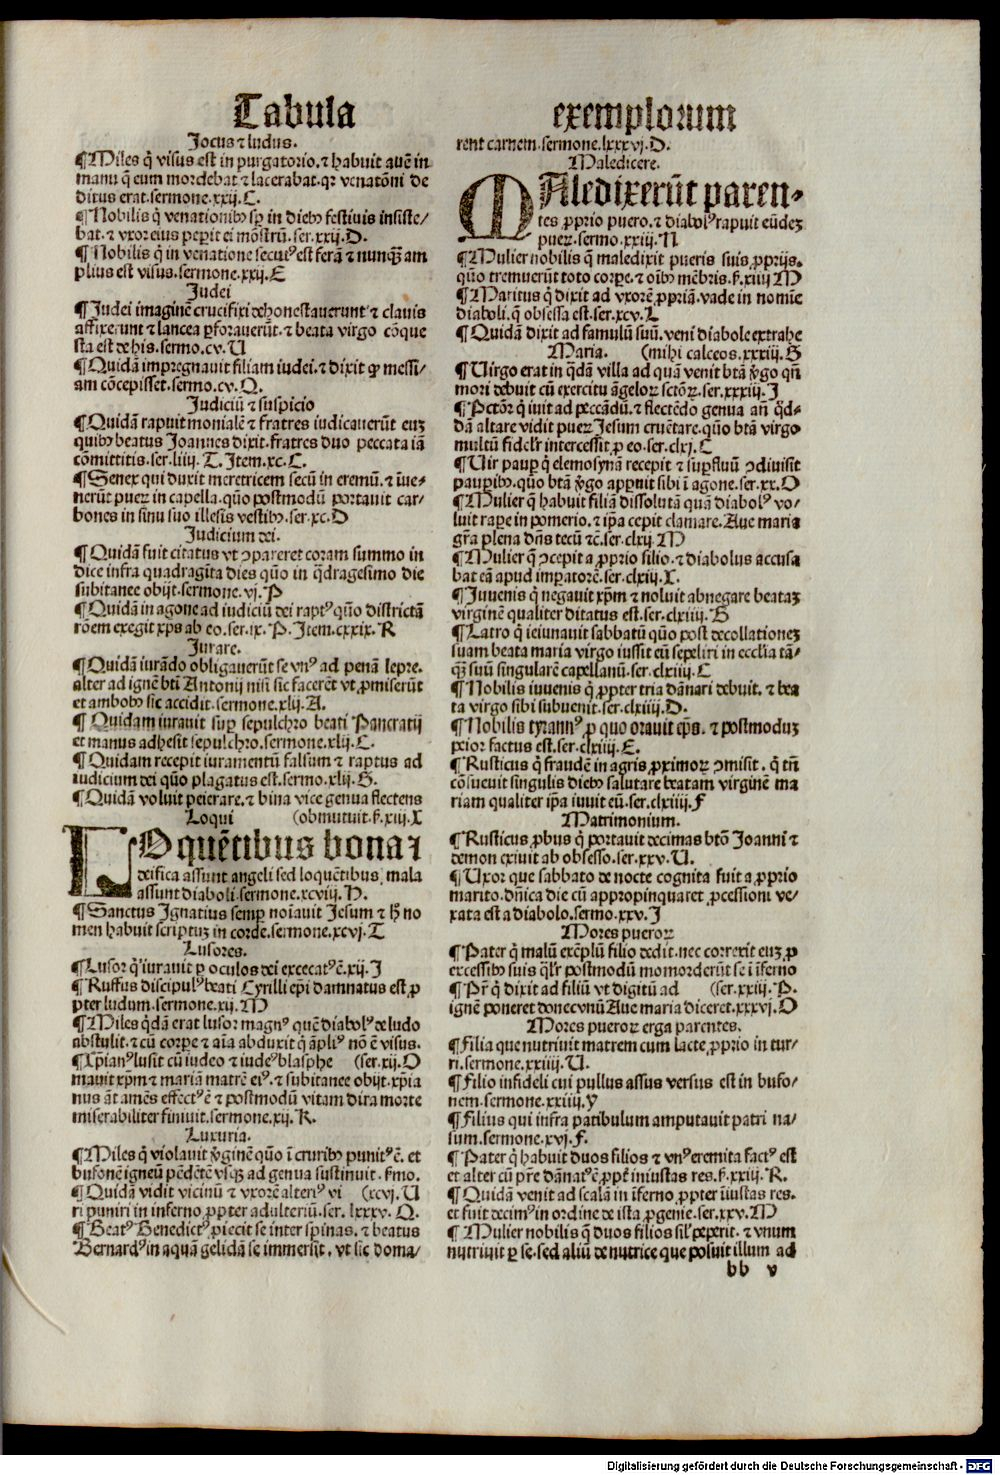 Tabula
Jocus ⁊ ludus.
¶Miles q̇ visus est in purgatorio.⁊ habuit auē in
manu q̄ eum mordebat ⁊ lacerabat.qꝛ venatōni de
ditus erat.sermone.xxij.C.
¶Nobilis q̇ venationibꝰ sꝑ in diebꝰ festiuis insiste/
bat.⁊ vxor eius peꝑit ei mōstrū.ser.xxij.D.
¶Nobilis q̇ in venatione secutꝰ est ferā ⁊ nunqꝫ am
plius est visus.sermone.xxij.E
Judei
¶Judei imaginē crucifixi dehonestauerunt ⁊ clauis
affixerunt ⁊ lancea ꝑforauerūt.⁊ beata virgo cōque
sta est de his.sermo.cv.U
¶Quidā impregnauit filiam iudei.⁊ dixit ꝙ messi/
am cōcepisset.sermo.cv.Q.
Judiciū ⁊ suspicio
¶Quidā rapuit monialē ⁊ fratres iudicauerūt euꝫ
quibꝰ beatus Joannes dixit.fratres duo peccata iā
cōmittitis.ser.liiij.T.Item.xc.C.
¶Senex qui duxit meretricem secū in eremū.⁊ īue-
nerūt pueꝝ in capella.quō postmodū portauit car-
bones in sinu suo illesis vestibꝰ.ser.xc.D
Judicium dei.
¶Quidā fuit citatus vt ꝯpareret coram summo in
dice infra quadragīta dies quō in q̄dragesimo die
subitanee obijt.sermone.vj.P
¶Quidā in agone ad iudiciū dei raptꝰ quō districtā
rōem exegit xp̄s ab eo.ser.ix.P.Item.cxxix.R
Jurare.
¶Quidā iurādo obligauerūt se vnꝰ ad penā lepre.
alter ad ignē btī Antonij nisi sic facerēt vt ꝓmiserūt
et ambobꝰ sic accidit.sermone.xlij.A.
¶Quidam iurauit suꝑ sepulchro beati Pancratij
et manus adhesit sepulchro.sermone.xlij.C.
¶Quidam recepit iuramentū falsum ⁊ raptus ad
iudicium dei quō plagatus est.sermo.xlij.G.
¶Quidā voluit peierare.⁊ bina vice genua flectens
Loqui (obmutuit.ẜ.xiij.X
LOquētibus bona ⁊
deifica assunt angeli sed loquētibus mala
assunt diaboli.sermone.xcviij.H.
¶Sanctus Ignatius semꝑ noīauit Jesum ⁊ hͦ no
men habuit scriptuꝫ in corde.sermone.xcvj.T
Lusores.
¶Lusor q̇ iurauit ꝑ oculos dei excecatꝰ ē.xij.I
¶Ruffus discipulꝰ beati Cyrilli ep̄i damnatus est ꝓ
pter ludum.sermone.xij.M
¶Miles q̇dā erat lusor magnꝰ quē diabolꝰ de ludo
abstulit.⁊ cū corꝑe ⁊ aīa abduxit q̇ āpliꝰ nō ē visus.
¶Xp̄ianꝰ lusit cū iudeo ⁊ iudeꝰ blasphe (ser.xij.O
mauit xpm̄ ⁊ mariā matrē eiꝰ.⁊ subitanee obijt.xp̄ia
nus āt amēs effectꝰ ē ⁊ postmodū vitam dira morte
miserabiliter finiuit.sermone.xij.K.
Luxuria.
¶Miles q̇ violauit v̄ginē quō ī cruribꝰ punitꝰ ē.et
bufonē igneū pēdētē vsqꝫ ad genua sustinuit.ẜmo.
¶Quidā vidit vicinū ⁊ vxorē alteriꝰ vi (xcvj.U
ri puniri in inferno ꝓpter adulteriū.ser.lxxxv.Q.
¶Beatꝰ Benedictꝰ ꝓiecit se inter spinas.⁊ beatus
Bernardꝰ in aquā gelidā se immersit.vt sic doma/
exemplorum
rent carnem.sermone.lxxxvj.D.
Maledicere.
MAledixerūt paren-
tes ꝓprio puero.⁊ diabolꝰ rapuit eūdeꝫ
pueꝝ.sermo.xxiij.N
¶Mulier nobilis q̄ maledixit pueris suis ꝓprijs.
quō tremuerūt toto corꝑe.⁊ oībꝰ mēbris.ẜ.xiiij M
¶Maritus q̇ dixit ad vxorē ꝓpriā.vade in nomīe
diaboli.q̄ obsessa est.ser.xcv.L
¶Quidā dixit ad famulū suū.veni diabole extrahe
Maria. (mihi calceos.xxxiij.G
¶Uirgo erat in q̄dā villa ad quā venit btā v̄go qn̄
mori debuit cū exercitu āgeloꝝ sctōꝝ.ser.xxxiij.I
¶Pctōr q̇ iuit ad peccādū.⁊ flectēdo genua an̄ q̇d-
dā altare vidit pueꝝ Jesum cruētare.quō btā virgo
multū fidelr̄ intercessit ꝓ eo.ser.clxj.C
¶Uir pauꝑ q̇ elemosynā recepit ⁊ suꝑfluū ꝯdiuisit
pauꝑibꝰ.quō btā v̄go apꝑuit sibi ī agone.ser.xx.O
¶Mulier q̄ habuit filiā dissolutā quā diabolꝰ vo-
luit raꝑe in pomerio.⁊ ip̄a cepit clamare.Aue maria
gr̄a plena dn̄s tecū ⁊c̄.ser.clxij.M
¶Mulier q̄ ꝯcepit a ꝓprio filio.⁊ diabolus accusa
bat eā apud imꝑatorē.ser.clxiij.X.
¶Juuenis q̇ negauit xpm̄ ⁊ noluit abnegare beataꝫ
virginē qualiter ditatus est.ser.clxiiij.B
¶Latro q̇ ieiunauit sabbatū quō post decollationeꝫ
suam beata maria virgo iussit eū sepeliri in ecclīa tā-
qꝫ suū singularē capellanū.ser.clxiiij.C
¶Nobilis iuuenis q̇ ꝓpter tria dānari debuit.⁊ bea
ta virgo sibi subuenit.ser.clxiiij.D.
¶Nobilis tyrannꝰ ꝓ quo orauit ep̄s.⁊ postmoduꝫ
peior factus est.ser.clxiiij.E.
¶Rusticus q̇ fraudē in agris ꝓximoꝝ ꝯmisit.q̇ tn̄
cōsueuit singulis diebꝰ salutare beatam virginē ma
riam qualiter ip̄a iuuit eū.ser.clxiiij.F
Matrimonium.
¶Rusticus ꝓbus q̇ portauit decimas btō Joanni ⁊
demon exiuit ab obsesso.ser.xxv.U.
¶Uxor que sabbato de nocte cognita fuit a ꝓprio
marito.dn̄ica die cū appropinquaret ꝓcessioni ve-
xata est a diabolo.sermo.xxv.I
Mores pueroꝝ
¶Pater q̇ malū exēplū filio dedit.nec correxit euꝫ ꝓ
excessibꝰ suis qlr̄ postmodū momorderūt se ī īferno
¶Pr̄ q̇ dixit ad filiū vt digitū ad (ser.xxiij.P.
ignē poneret donec vnū Aue maria diceret.xxxvj.O
Mores pueroꝝ erga parentes.
¶Filia que nutriuit matrem cum lacte ꝓprio in tur-
ri.sermone.xxiiij.U.
¶Filio infideli cui pullus assus versus est in bufo/
nem.sermone.xxiiij.Y
¶Filius qui infra patibulum amputauit patri na/
sum.sermone.xvj.F.
¶Pater q̇ habuit duos filios ⁊ vnꝰ eremita factꝰ est
et alter cū pr̄e dānatꝰ ē ꝓpt̄ iniustas res.ẜ.xxiij.R.
¶Quidā venit ad scalā in īferno ꝓpter īiustas res.
et fuit decimꝰ in ordine de ista ꝓgenie.ser.xxv.M
¶Mulier nobilis q̄ duos filios sil̄ peperit.⁊ vnum
nutriuit ꝑ se.sed aliū de nutrice que posuit illum ad
bb v
Digitalisierung gefördert durch die Deutsche Forschungsgemeinschaft - DFG